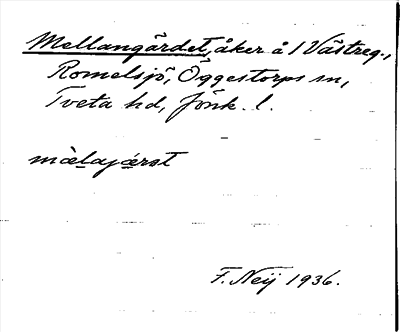 Mellangärdet, åker å 1 Västreg.,
Romelsjö, Öggestorps sn,
Tveta hd, Jönk. l.
màlajǽrst
F. Neij 1936.